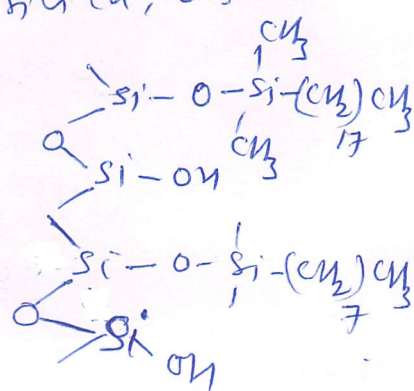 CH3
Si - O - Si - (CH2) CH3
17
O
CH3
Si - OH
Si - O - Si - (CH2) CH3
7
O
Si
OH